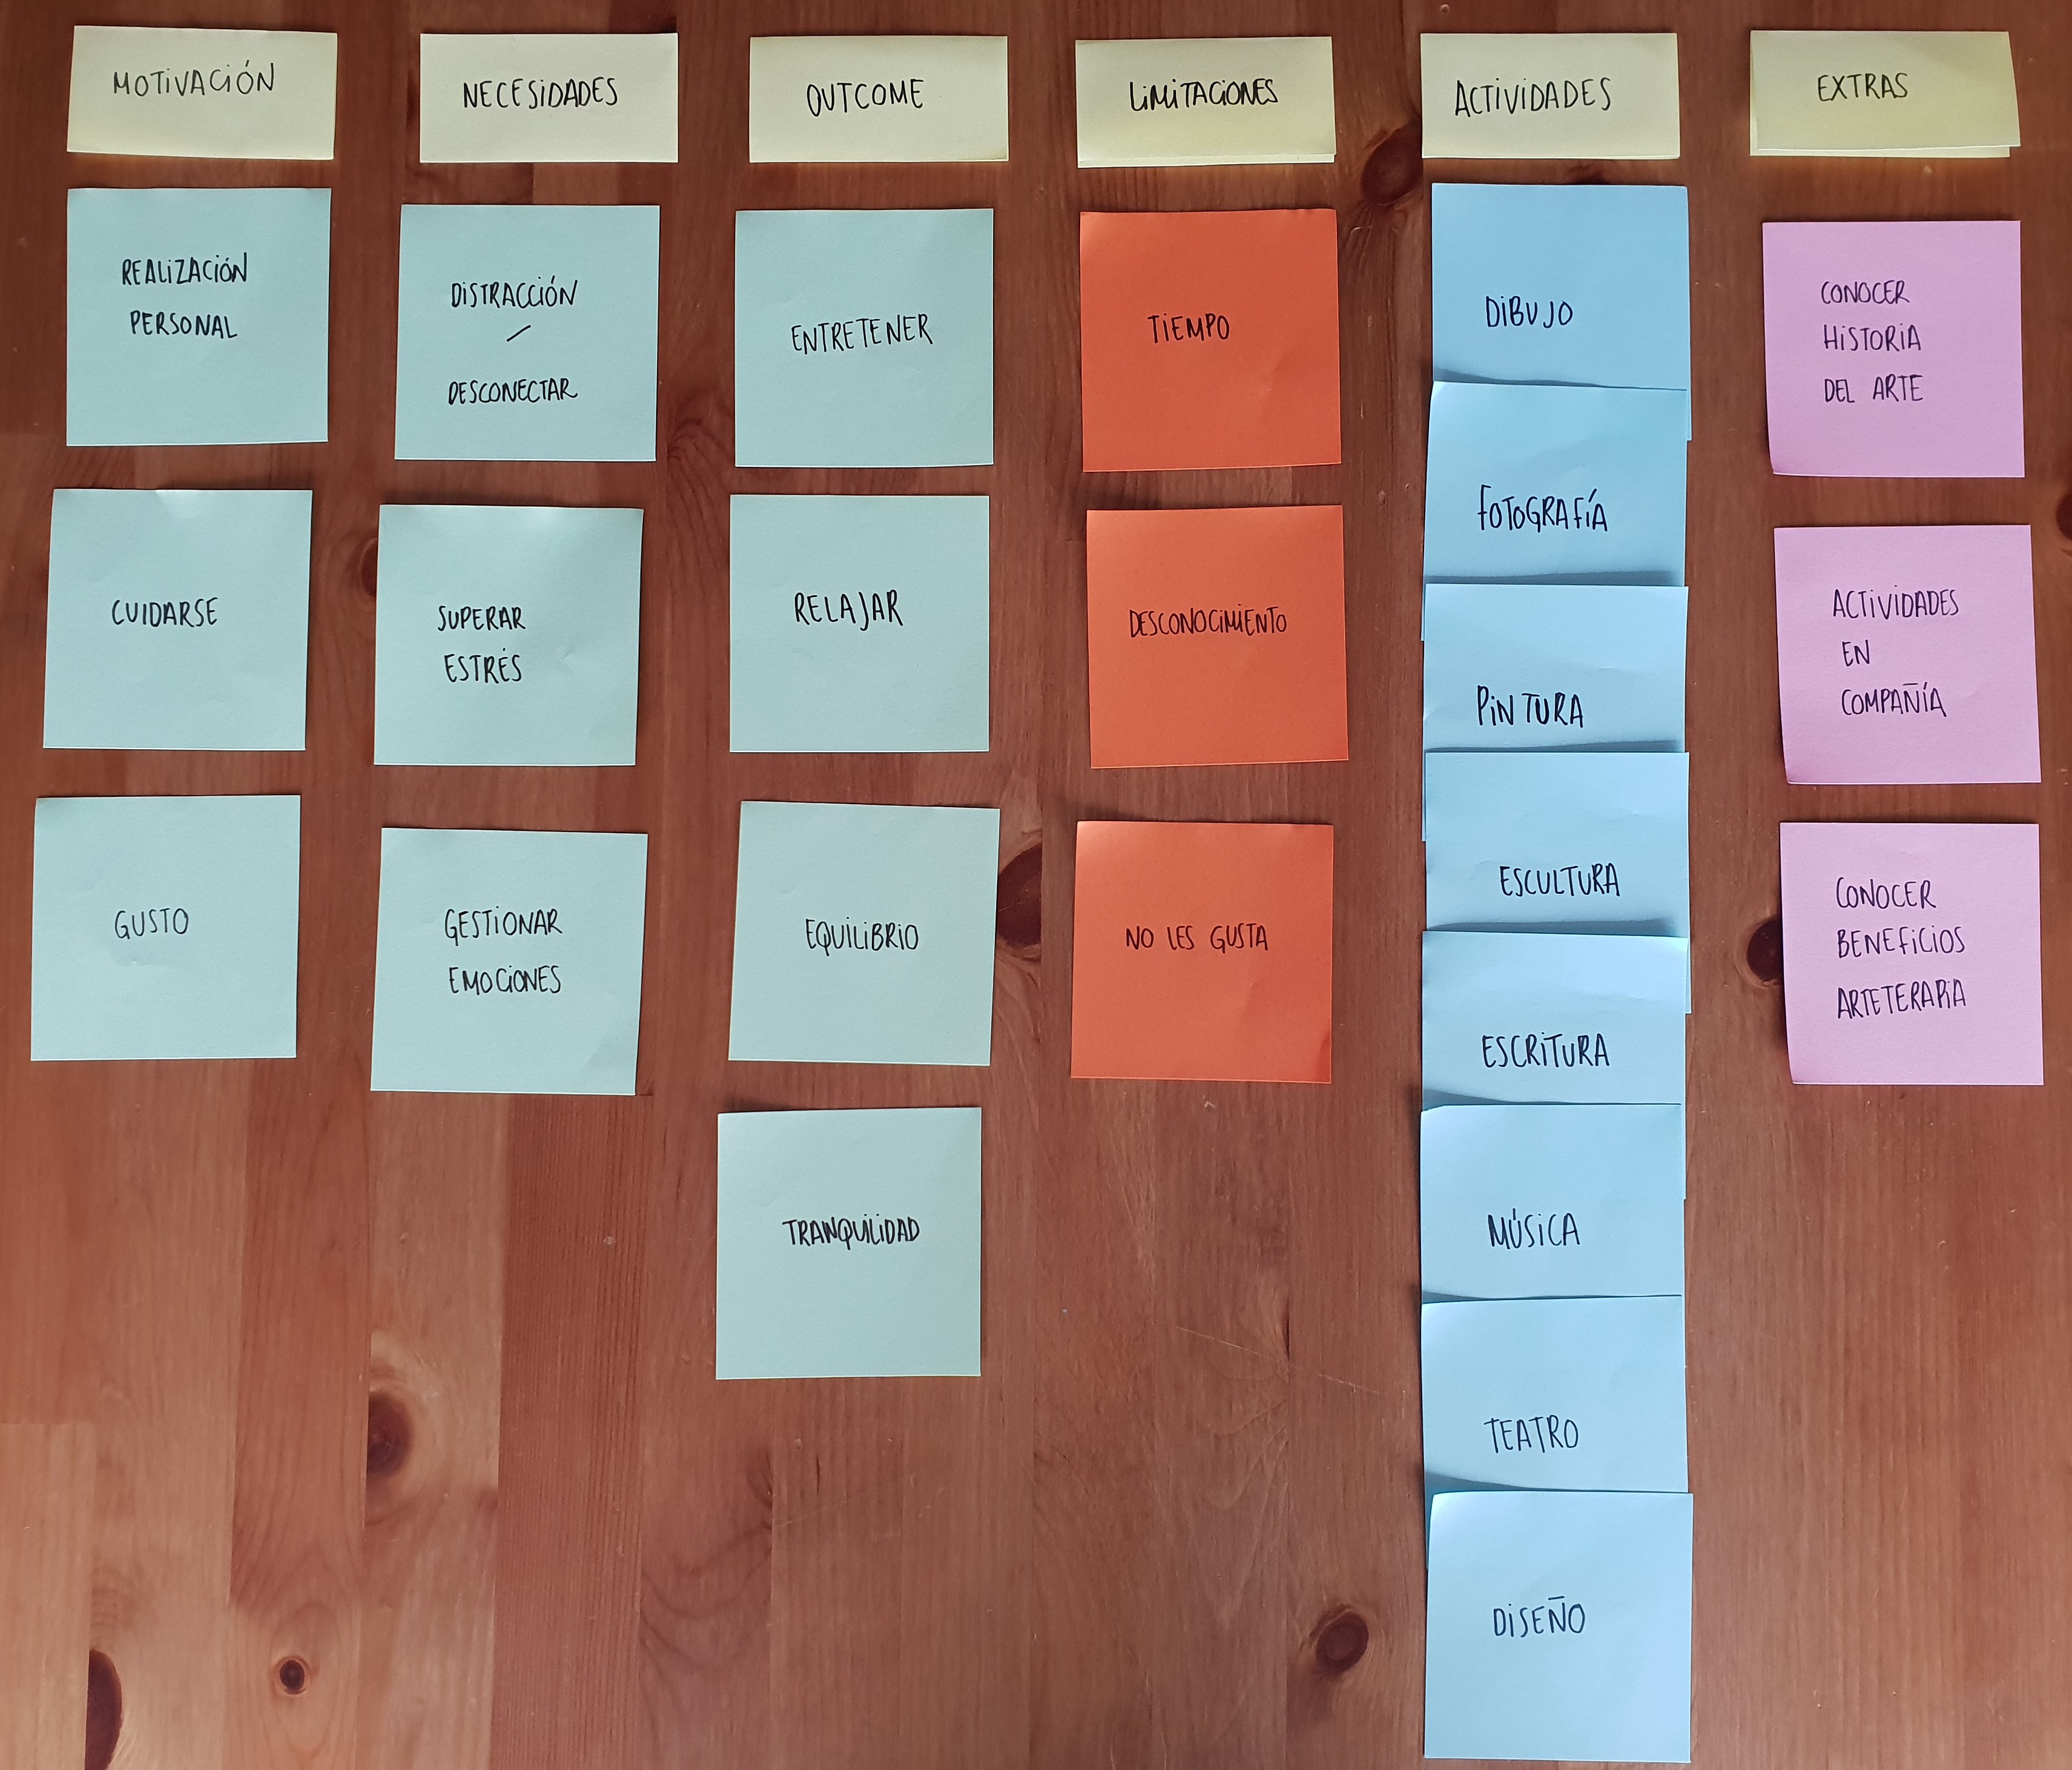 MOTIVACIÓN
REALIZACIÓN
PERSONAL
CUIDARSE
GUSTO
NECESIDADES
DISTRACCIÓN
/
DESCONECTAR
SUPERAR
ESTRÉS
GESTIONAR
EMOCIONES
OUTCOME
ENTRETENER
RELAJAR
EQUILIBRIO
TRANQUILIDAD
LIMITACIONES
TIEMPO
DESCONOCIMIENTO
NO LES GUSTA
ACTIVIDADES
DIBUJO
FOTOGRAFÍA
PINTURA
ESCULTURA
ESCRITURA
MÚSICA
TEATRO
DISEÑO
EXTRAS
CONOCER
HISTORIA
DEL ARTE
ACTIVIDADES
EN
COMPAÑÍA
CONOCER
BENEFICIOS
ARTETERAPIA